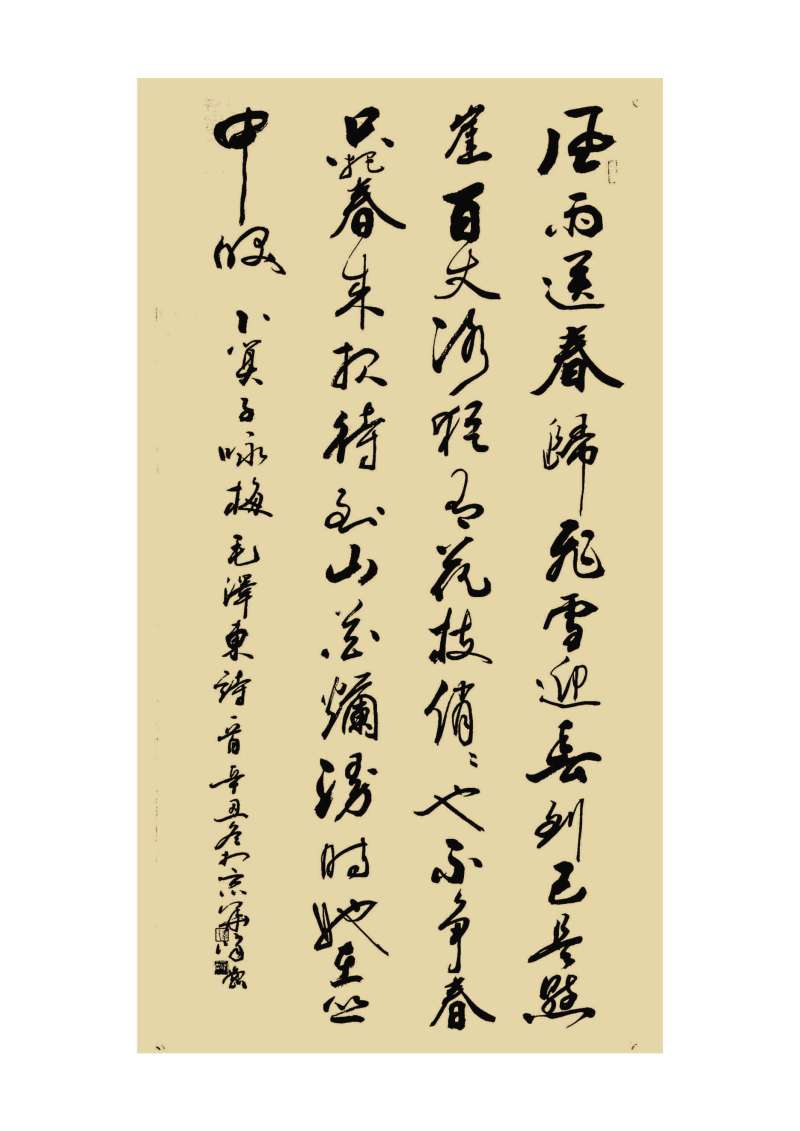 風雨送春歸飛雪迎春到已是懸
崖百丈冰猶有花枝俏〻也不争春
只把春来报待到山花爛漫時她在丛
中笑 卜算子咏梅 毛澤東詩一首 辛丑冬於京華